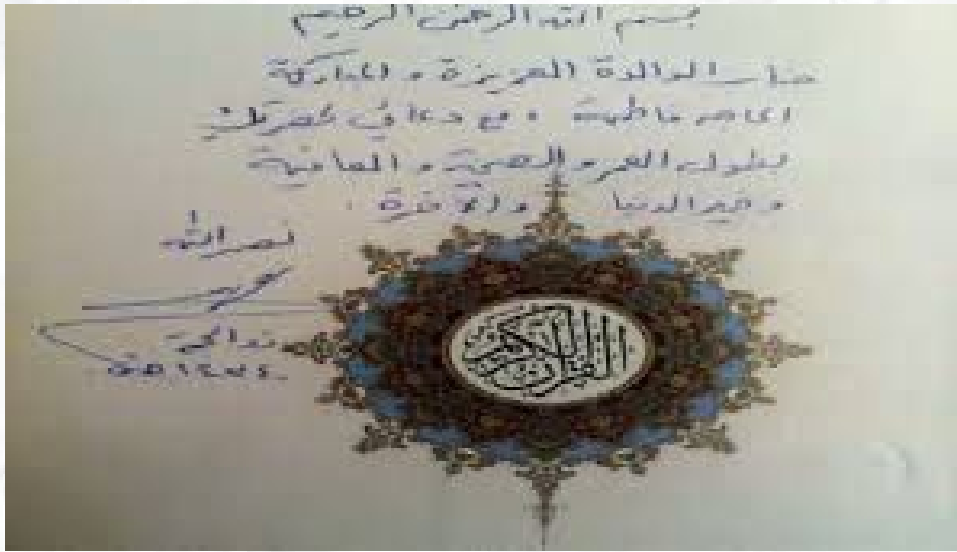 بسم الله الرحمن الرحيم
الوالدة العزيزة و المباركة
الحاجة فاطمة ، مع دعائي
بطول العمر و الصحة و العافية
و خير الدنيا و الآخرة .
نصر الله
ذو الحجة
١٤٣٤ هـ
القرآن الكريم